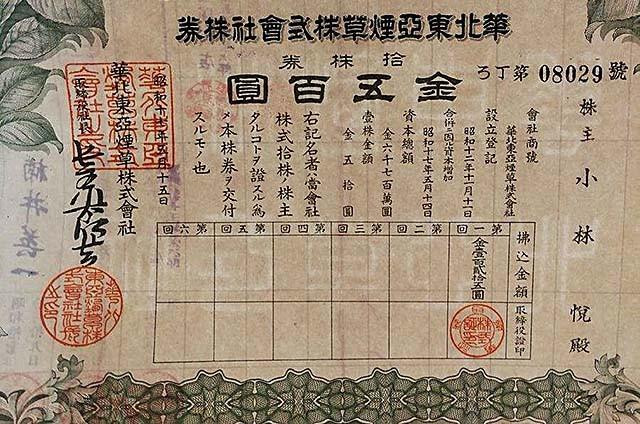 華北東亞煙草株式會社株券
拾株券
金五百圓
ろ丁第08029號
株主 小林 悅 殿
會社商號
華北東亞煙草株式會社
設立登記
昭和十二年十一月十一日
合併ニ因ル資本增加
昭和十七年五月十四日
資本總額
金六千七百萬圓
壹株金額
金五拾圓
右記名者ハ當會社
株式拾株ノ株主
タルコトヲ證スル爲
メ本株券ヲ交付
スルモノ也
五月十五日
華北東亞煙草株式會社
取締役社長
拂込金額
取締役證印
第一回
金壹百貳拾五圓
第二回
第三回
第四回
第五回
第六回